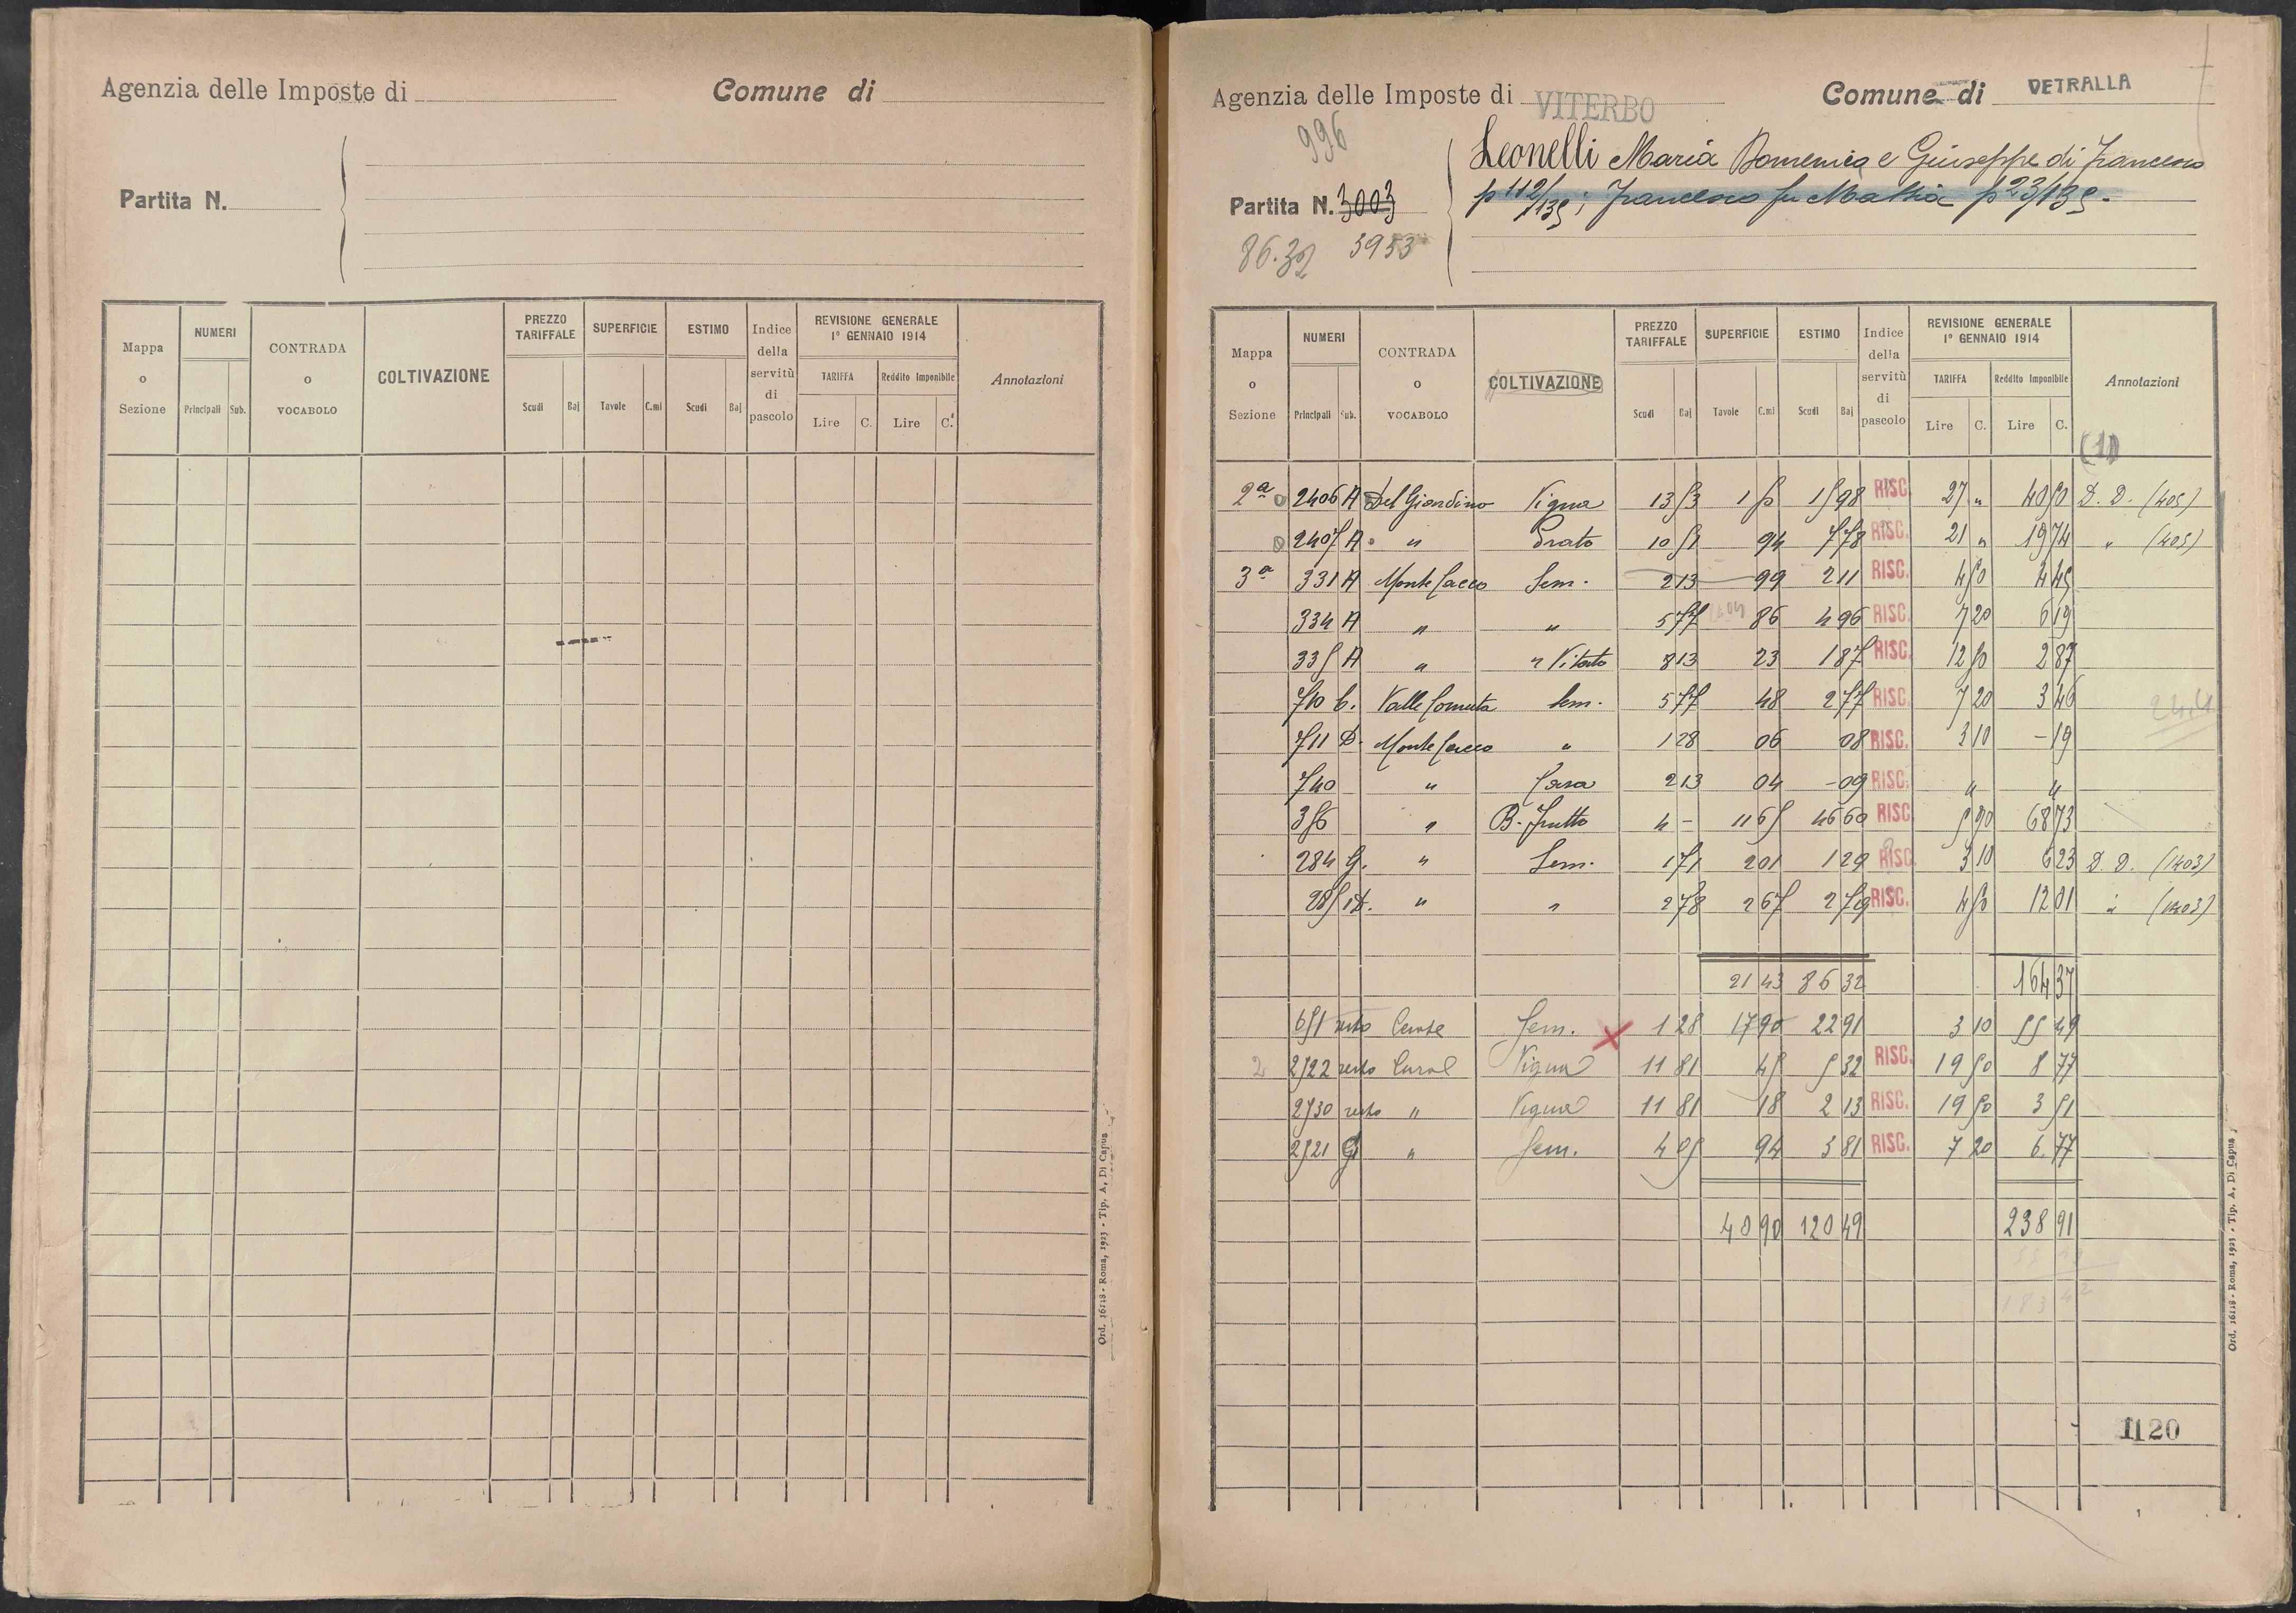 Agenzia delle Imposte di Comune di
Partita N.
Mappa o Sezione NUMERI Principali Sub. CONTRADA o VOCABOLO COLTIVAZIONE PREZZO TARIFFALE Scudi Baj SUPERFICIE Tavole C.mi ESTIMO Scudi Baj Indice della servitù di pascolo REVISIONE GENERALE 1° GENNAIO 1914 TARIFFA Lire C. Reddito Imponibile Lire C. Annotazioni
Ord. 16218 - Roma, 1923 - Tip. A. Di Capua
Agenzia delle Imposte di VITERBO Comune di VETRALLA
996
Leonelli Maria Domenica e Giuseppe di Francesco
Partita N. 3003 p 112/135; Francesco fu Mattia p 23/135.
86.32 3953
Mappa o Sezione NUMERI Principali Sub. CONTRADA o VOCABOLO COLTIVAZIONE PREZZO TARIFFALE Scudi Baj SUPERFICIE Tavole C.mi ESTIMO Scudi Baj Indice della servitù di pascolo REVISIONE GENERALE 1° GENNAIO 1914 TARIFFA Lire C. Reddito Imponibile Lire C. Annotazioni
(1)
2ª 2406 A Del Giardino Vigna 13 53 1 5 15 98 RISC. 27 " 40 50 D. D. (405)
2407 A " Prato 10 51 94 7 78 RISC. 21 " 19 74 " (405)
3ª 331 A Monte Cacco Sem. 2 13 99 2 11 RISC. 4 50 4 45
334 A " " 5 77 86 4 96 RISC. 7 20 6 19
335 A " " Vitato 8 13 23 1 87 RISC. 12 50 2 87
710 C. Valle Cornuta Sem. 5 77 48 2 77 RISC. 7 20 3 46
711 D. Monte Cacco " 1 28 06 08 RISC. 3 10 - 19
740 " Casa 2 13 04 - 09 RISC. " "
356 " B. Frutto 4 - 11 65 46 60 RISC. 5 90 68 73
284 G. " Sem. 1 71 2 01 1 29 RISC. 3 10 6 23 D. D. (1403)
285 1D. " " 2 78 2 67 2 79 RISC. 4 50 12 01 " (1403)
21 43 86 32 164 37
651 resto Cerose Sem. X 1 28 17 90 22 91 3 10 55 49
2 2522 resto Curol Vigna 11 81 45 5 32 RISC. 19 50 8 77
2530 resto " Vigna 11 81 18 2 13 RISC. 19 50 3 51
2521 G " Sem. 4 05 94 3 81 RISC. 7 20 6.77
40 90 120 49 238 91
55 49
183 42
1120
Ord. 16218 - Roma, 1923 - Tip. A. Di Capua